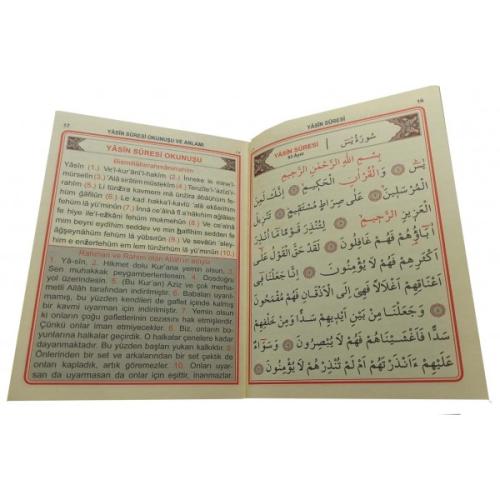 17
YÂSÎN SÛRESİ OKUNUŞU VE ANLAMI
YÂSÎN SÛRESİ OKUNUŞU
Bismillâhirrahmânirrahîm
Yâsîn (1.) Ve'l-kur'âni'l-hakîm (2.) İnneke le mine'l-
mürselîn (3.) 'Alâ sırâtın müstekîm (4.) Tenzîle'l-'azîzi'r-
rahîm (5.) Li tünzira kavmen mâ ünzira âbâühüm fe-
hüm ğâfilûn (6.) Le kad hakka'l-kavlü 'alâ ekserihim
fehüm lâ yü'minûn (7.) İnnâ ce'alnâ fî a'nâkıhim ağlâlen
fe hiye ile'l-ezkâni fehüm mukmehûn (8.) Ve ce'alnâ
min beyni eydîhim seddev ve min halfihim seddenfe
ağşeynâhüm fehüm lâ yübsirûn (9.) Ve sevâün 'aley-
him e enzertehüm em lem tünzirhüm lâ yü'minûn (10.)
Rahmân ve Rahîm olan Allah'ın adıyla
1. Yâ-sîn. 2. Hikmet dolu Kur'an'a yemin olsun, 3.
Sen muhakkak peygamberlerdensin. 4. Dosdoğru
yol üzerindesin. 5. (Bu Kur'an) Aziz ve çok merha-
metli Allâh tarafından indirilmiştir. 6. Babaları uyarıl-
mamış, bu yüzden kendileri de gaflet içinde kalmış
bir kavmi uyarman için indirilmiştir. 7. Yemin olsun
ki onların çoğu gafletlerinin cezasını hak etmişlerdir.
Çünkü onlar iman etmiyecekler. 8. Biz, onların bo-
yunlarına halkalar geçirdik. O halkalar çenelere kadar
dayanmaktadır. Bu yüzden başları yukarı kalkıktır. 9.
Önlerinden bir set ve arkalarından bir set çektik de
onları kapladık, artık göremezler. 10. Onları uyar-
san da uyarmasan da onlar için eşittir, inanmazlar.
16
YÂSÎN SÛRESİ
YÂSÎN SÛRESİ سُورَةُ يٰسٓ
83 Âyet
بِسْمِ اللّٰهِ الرَّحْمٰنِ الرَّحِيمِ
يٰسٓ ۞ وَالْقُرْاٰنِ الْحَكِيمِ ۞ اِنَّكَ لَمِنَ
الْمُرْسَلِينَ ۞ عَلٰى صِرَاطٍ مُسْتَقِيمٍ ۞ تَنْزِيلَ
الْعَزِيزِ الرَّحِيمِ ۞ لِتُنْذِرَ قَوْمًا مَٓا اُنْذِرَ
اٰبَٓاؤُهُمْ فَهُمْ غَافِلُونَ ۞ لَقَدْ حَقَّ الْقَوْلُ عَلٰٓى
اَكْثَرِهِمْ فَهُمْ لَا يُؤْمِنُونَ ۞ اِنَّا جَعَلْنَا فِٓى
اَعْنَاقِهِمْ اَغْلَالًا فَهِىَ اِلَى الْاَذْقَانِ فَهُمْ مُقْمَحُونَ
۞ وَجَعَلْنَا مِنْ بَيْنِ اَيْدِيهِمْ سَدًّا وَمِنْ خَلْفِهِمْ
سَدًّا فَاَغْشَيْنَاهُمْ فَهُمْ لَا يُبْصِرُونَ ۞ وَسَوَٓاءٌ
عَلَيْهِمْ ءَاَنْذَرْتَهُمْ اَمْ لَمْ تُنْذِرْهُمْ لَا يُؤْمِنُونَ ۞